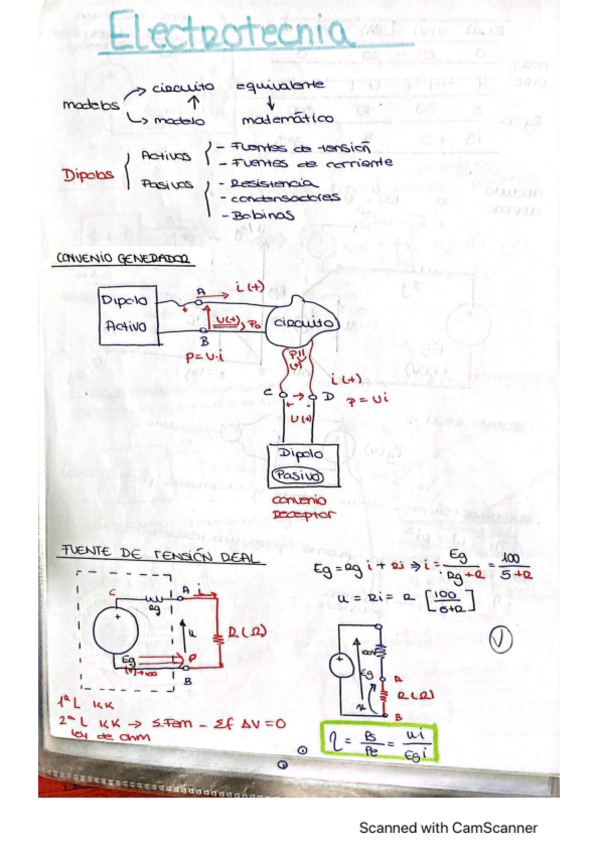 Electrotecnia
modelos circuito equivalente
modelo matemático
Dipolos
Activos - Fuentes de tensión
- Fuentes de corriente
Pasivos - Resistencia
- condensadores
- Bobinas
CONVENIO GENERADOR
Dipolo
Activo
A i(+)
+ U(+) P
B
P=U·i
circuito
P
(+)
i(+)
C D P=Ui
+ -
U(+)
Dipolo
Pasivo
convenio
Receptor
FUENTE DE TENSIÓN IDEAL
Eg=Rg i + Ri ⇒ i = Eg / Rg+R = 100 / 5+R
u = Ri = R [100 / 5+R]
C Rg A i
+ u R(Ω)
Eg P
(V)→100
B
V
100V
+ Eg A
u R(Ω)
B
1ª L KK
2ª L KK → Σ.Fem - Σf ΔV=0
Ley de ohm
η = Ps / Pe = u i / Eg i
1
Scanned with CamScanner